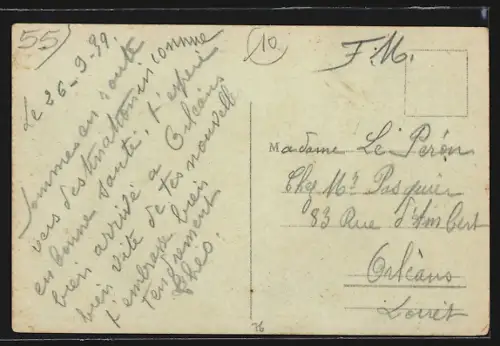 55
10
F.M.
Le 26-9-39.
Sommes en route
vers destination inconnue
en bonne santé, t'espère
bien arrivée à Orléans
bien vite de tes nouvell
t'embrasse bien
tendrement
Théo.
Madame Le Peron
Chez Mr Pasquier
83 Rue d'Ambert
Orléans
Loiret
76